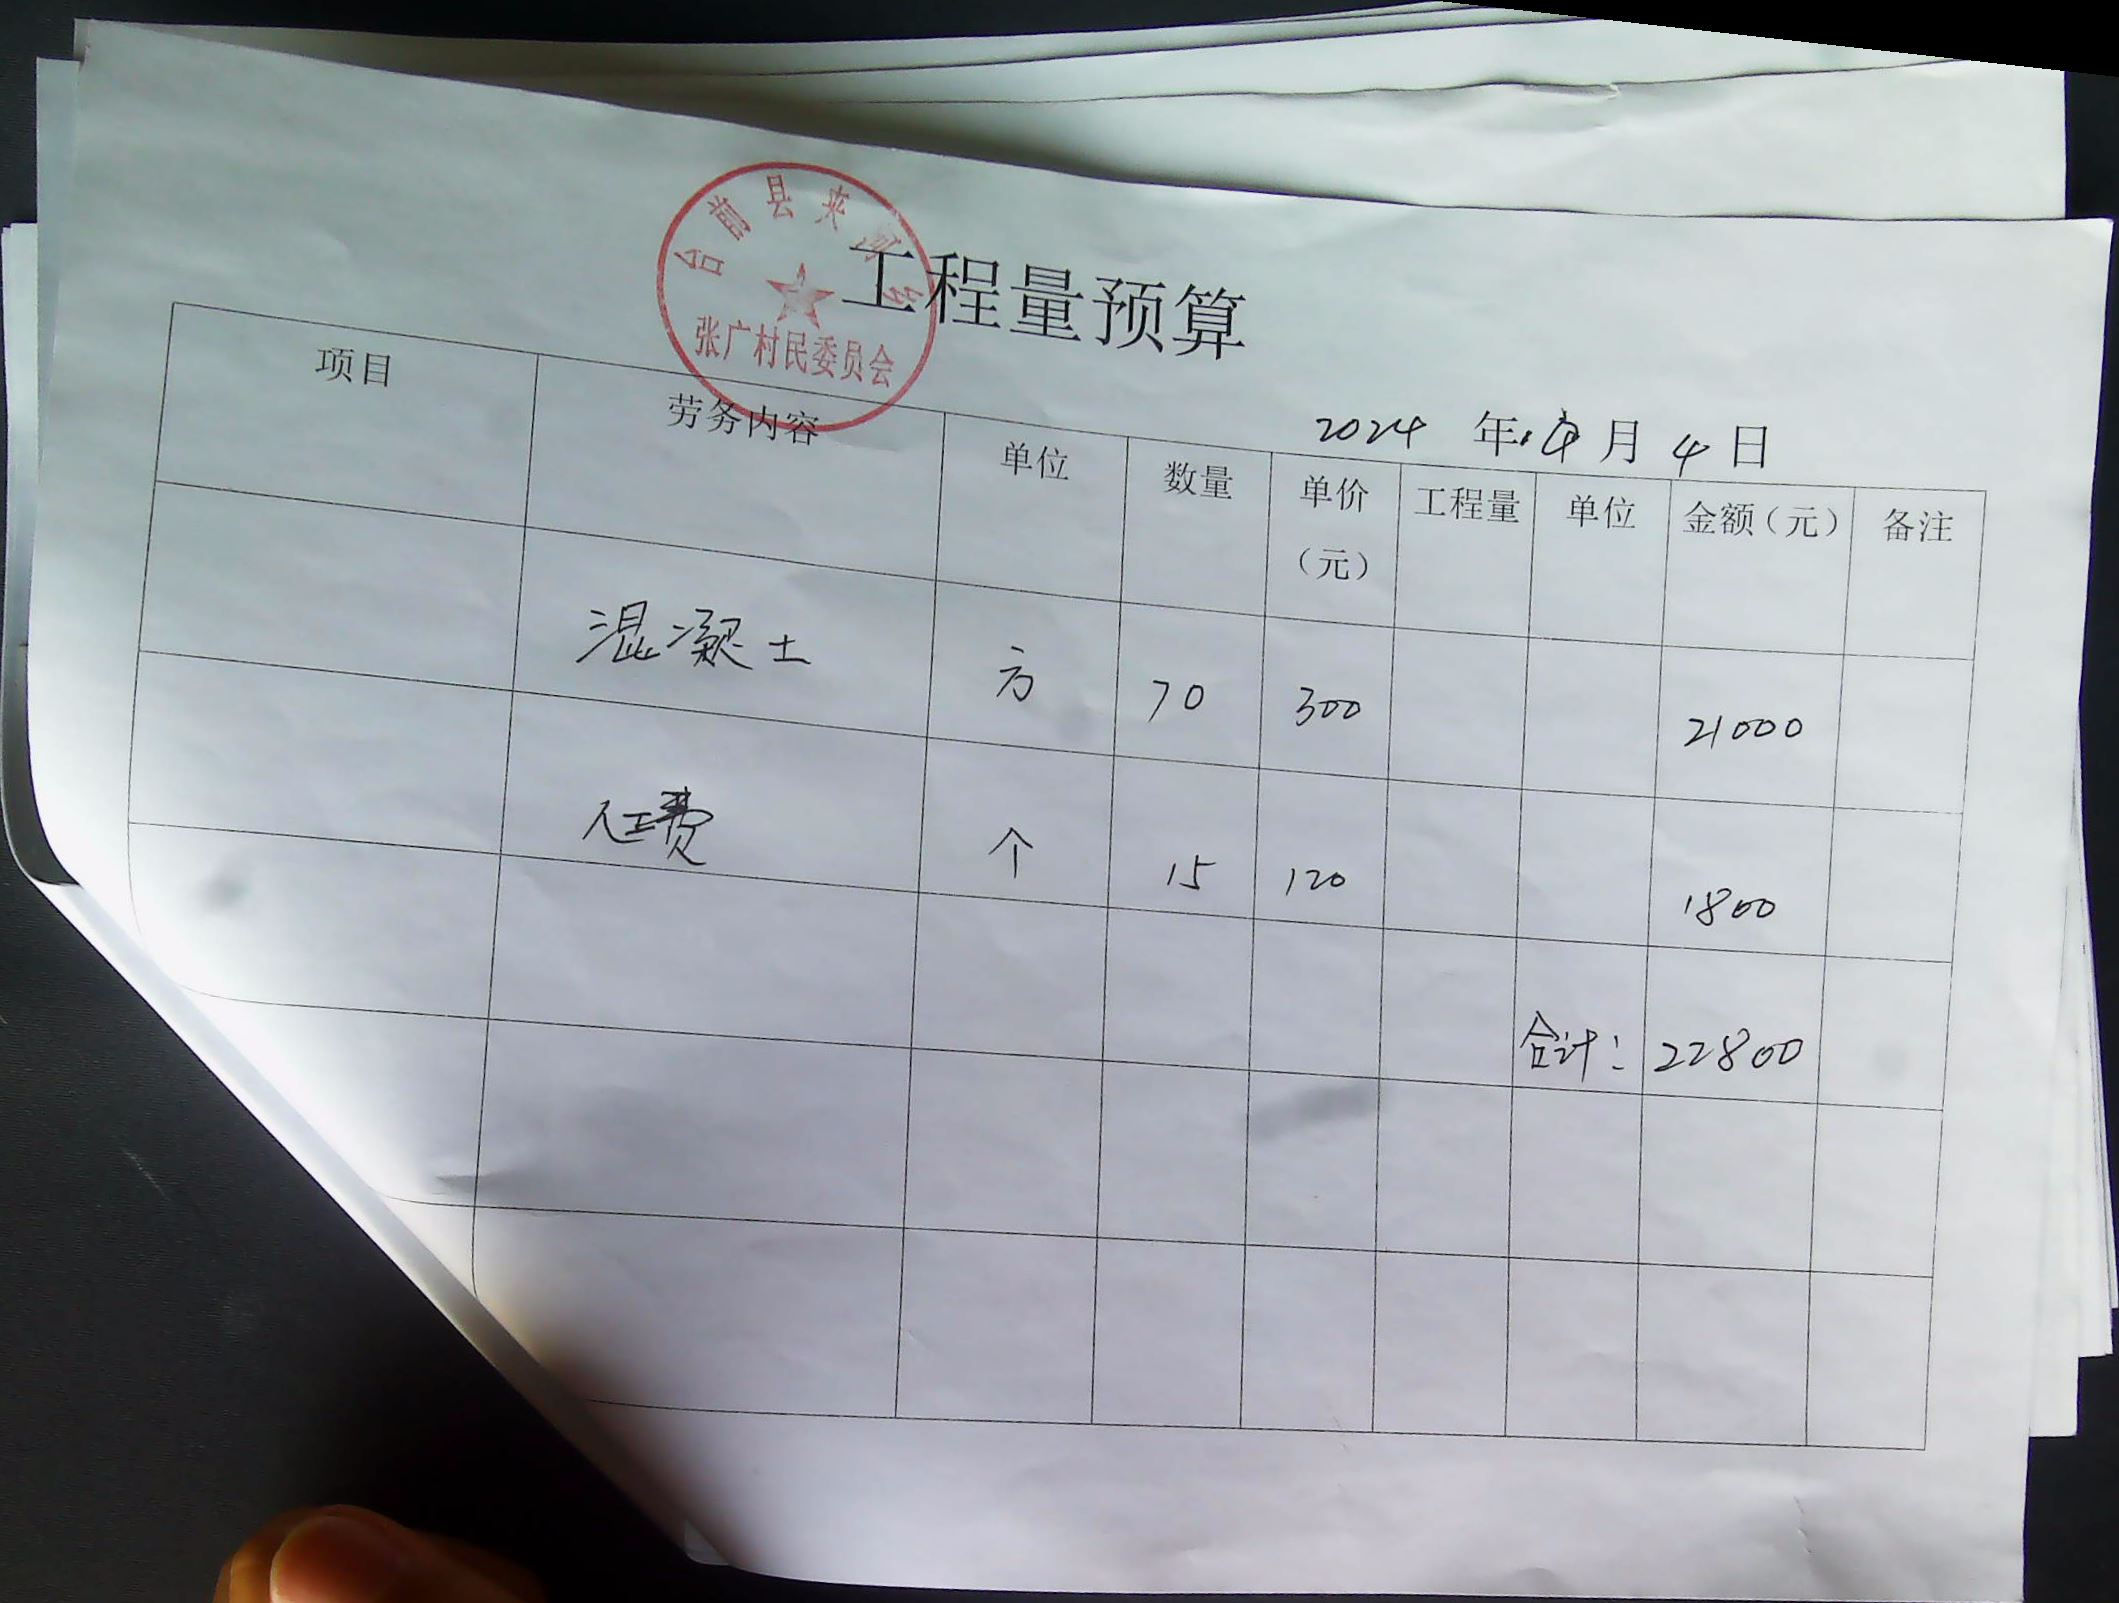 台前县夹河乡
张广村民委员会
工程量预算
2024 年 月 4 日
项目 劳务内容 单位 数量 单价（元） 工程量 单位 金额（元） 备注
混凝土 方 70 300 21000
人工费 个 15 120 1800
合计： 22800